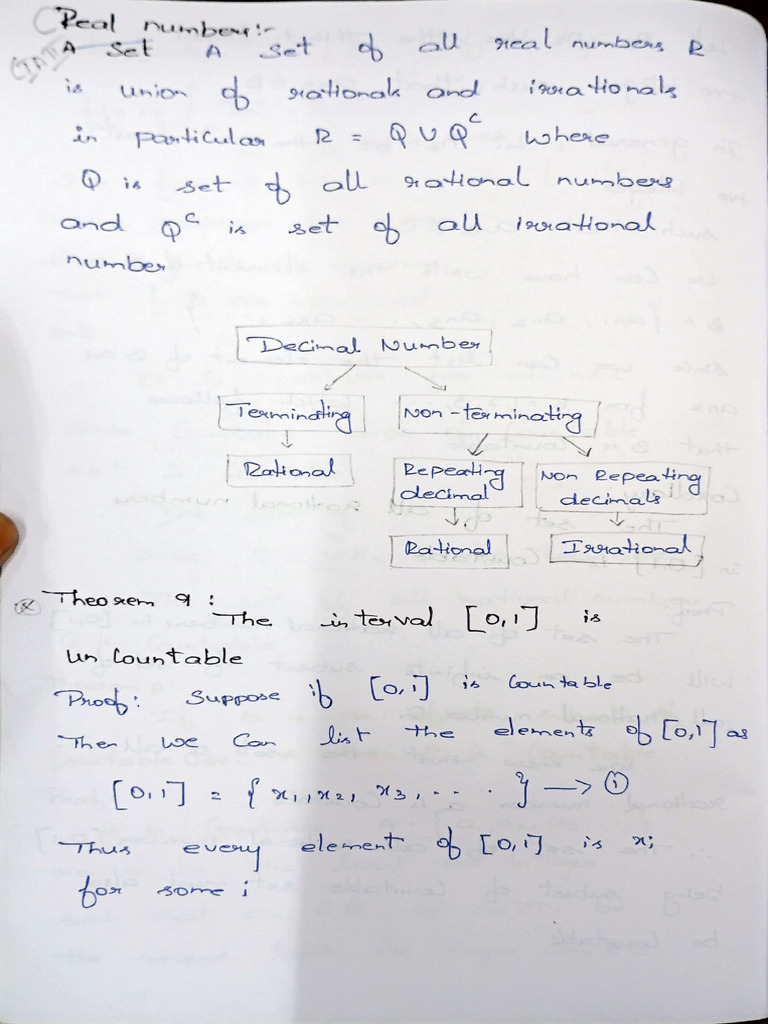 Real numbers:-
A Set A set of all real numbers R
is union of rationals and irrationals
in particular R = Q ∪ Q^C where
Q is set of all rational numbers
and Q^C is set of all irrational
number
Decimal Number
Terminating Non-terminating
Rational Repeating decimal Non Repeating decimals
Rational Irrational
Theorem 9: The interval [0,1] is
unCountable
Proof: Suppose if [0,1] is Countable
Then we Can list the elements of [0,1] as
[0,1] = { x₁, x₂, x₃, .... } → ①
Thus every element of [0,1] is xᵢ
for some i